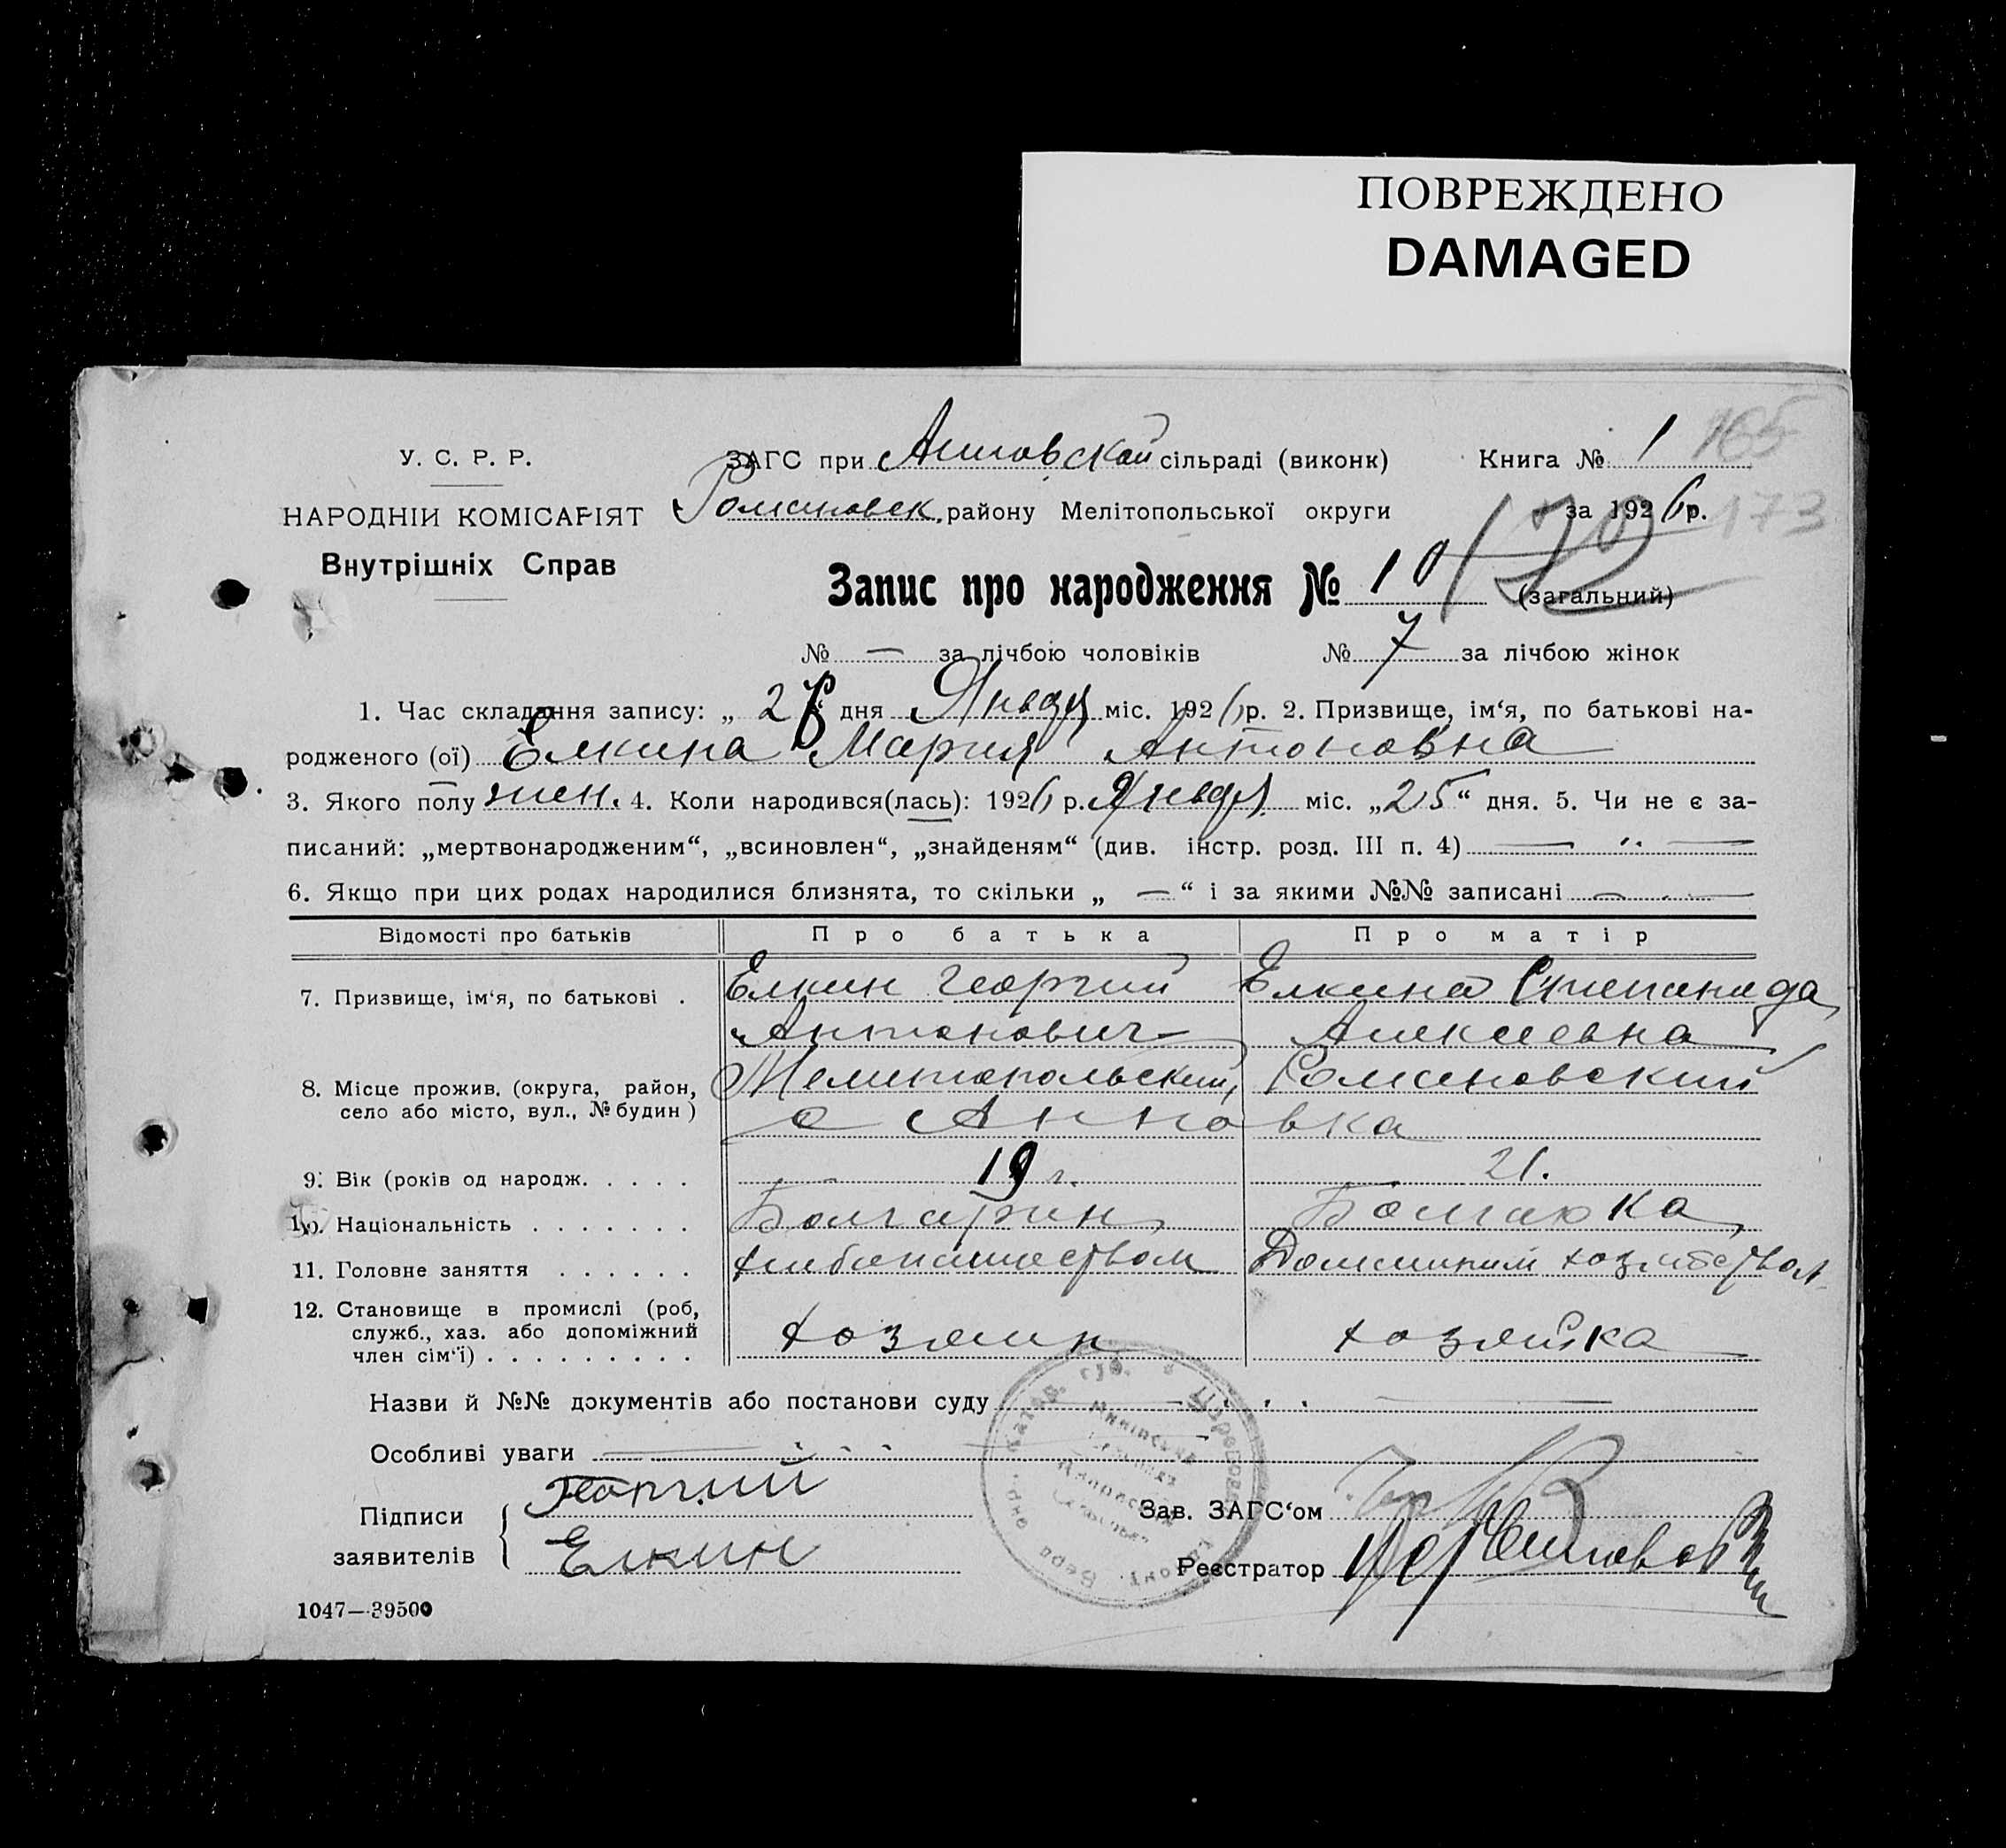 ПОВРЕЖДЕНО
DAMAGED
У. С. Р. Р.
НАРОДНІЙ КОМІСАРІЯТ
Внутрішніх Справ
ЗАГС при Анновской сільраді (виконк)
Романовск. району Мелітопольської округи
Книга № 1 165
за 1926 р. 173
Запис про народження № 10 (загальний)
№ — за лічбою чоловіків № 7 за лічбою жінок
1. Час складання запису: „ 28 “ дня Январ міс. 1926 р. 2. Призвище, ім‘я, по батькові на-
родженого (ої) Елкина Мария Антоновна
3. Якого полу жен. 4. Коли народився(лась): 1926 р. Январ. міс. „25“ дня. 5. Чи не є за-
писаний: „мертвонародженим“, „всиновлен“, „знайденям“ (див. інстр. розд. III п. 4) — „ —
6. Якщо при цих родах народилися близнята, то скільки „ — “ і за якими №№ записані —
Відомості про батьків Про батька Про матір
7. Призвище, ім‘я, по батькові . Елкин Георгий Елкина Степанида
Антонович Алексеевна
8. Місце прожив. (округа, район, Мелитопольский, Романовский
село або місто, вул., № будин ) с Анновка
9. Вік (років од народж. . . . . 19 г. 21.
10. Національність . . . . . . . Болгарин Болгарка
11. Головне заняття . . . . . . хлебопашеством Домашним хозяйством
12. Становище в промислі (роб,
служб., хаз. або допоміжний хозяин хозяйка
член сім‘ї) . . . . . . . . .
Назви й №№ документів або постанови суду
Особливі уваги
Підписи Георгий
заявителів Елкин
Зав. ЗАГС‘ом
Реєстратор
1047—39500